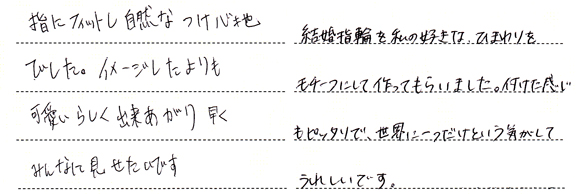 指にフィットし自然なつけ心地
でした。イメージしたよりも
可愛いらしく出来あがり早く
みんなに見せたいです
結婚指輪を私の好きな、ひまわりを
モチーフにして作ってもらいました。付けた感じ
もピッタリで、世界に一つだけという気がして
うれしいです。